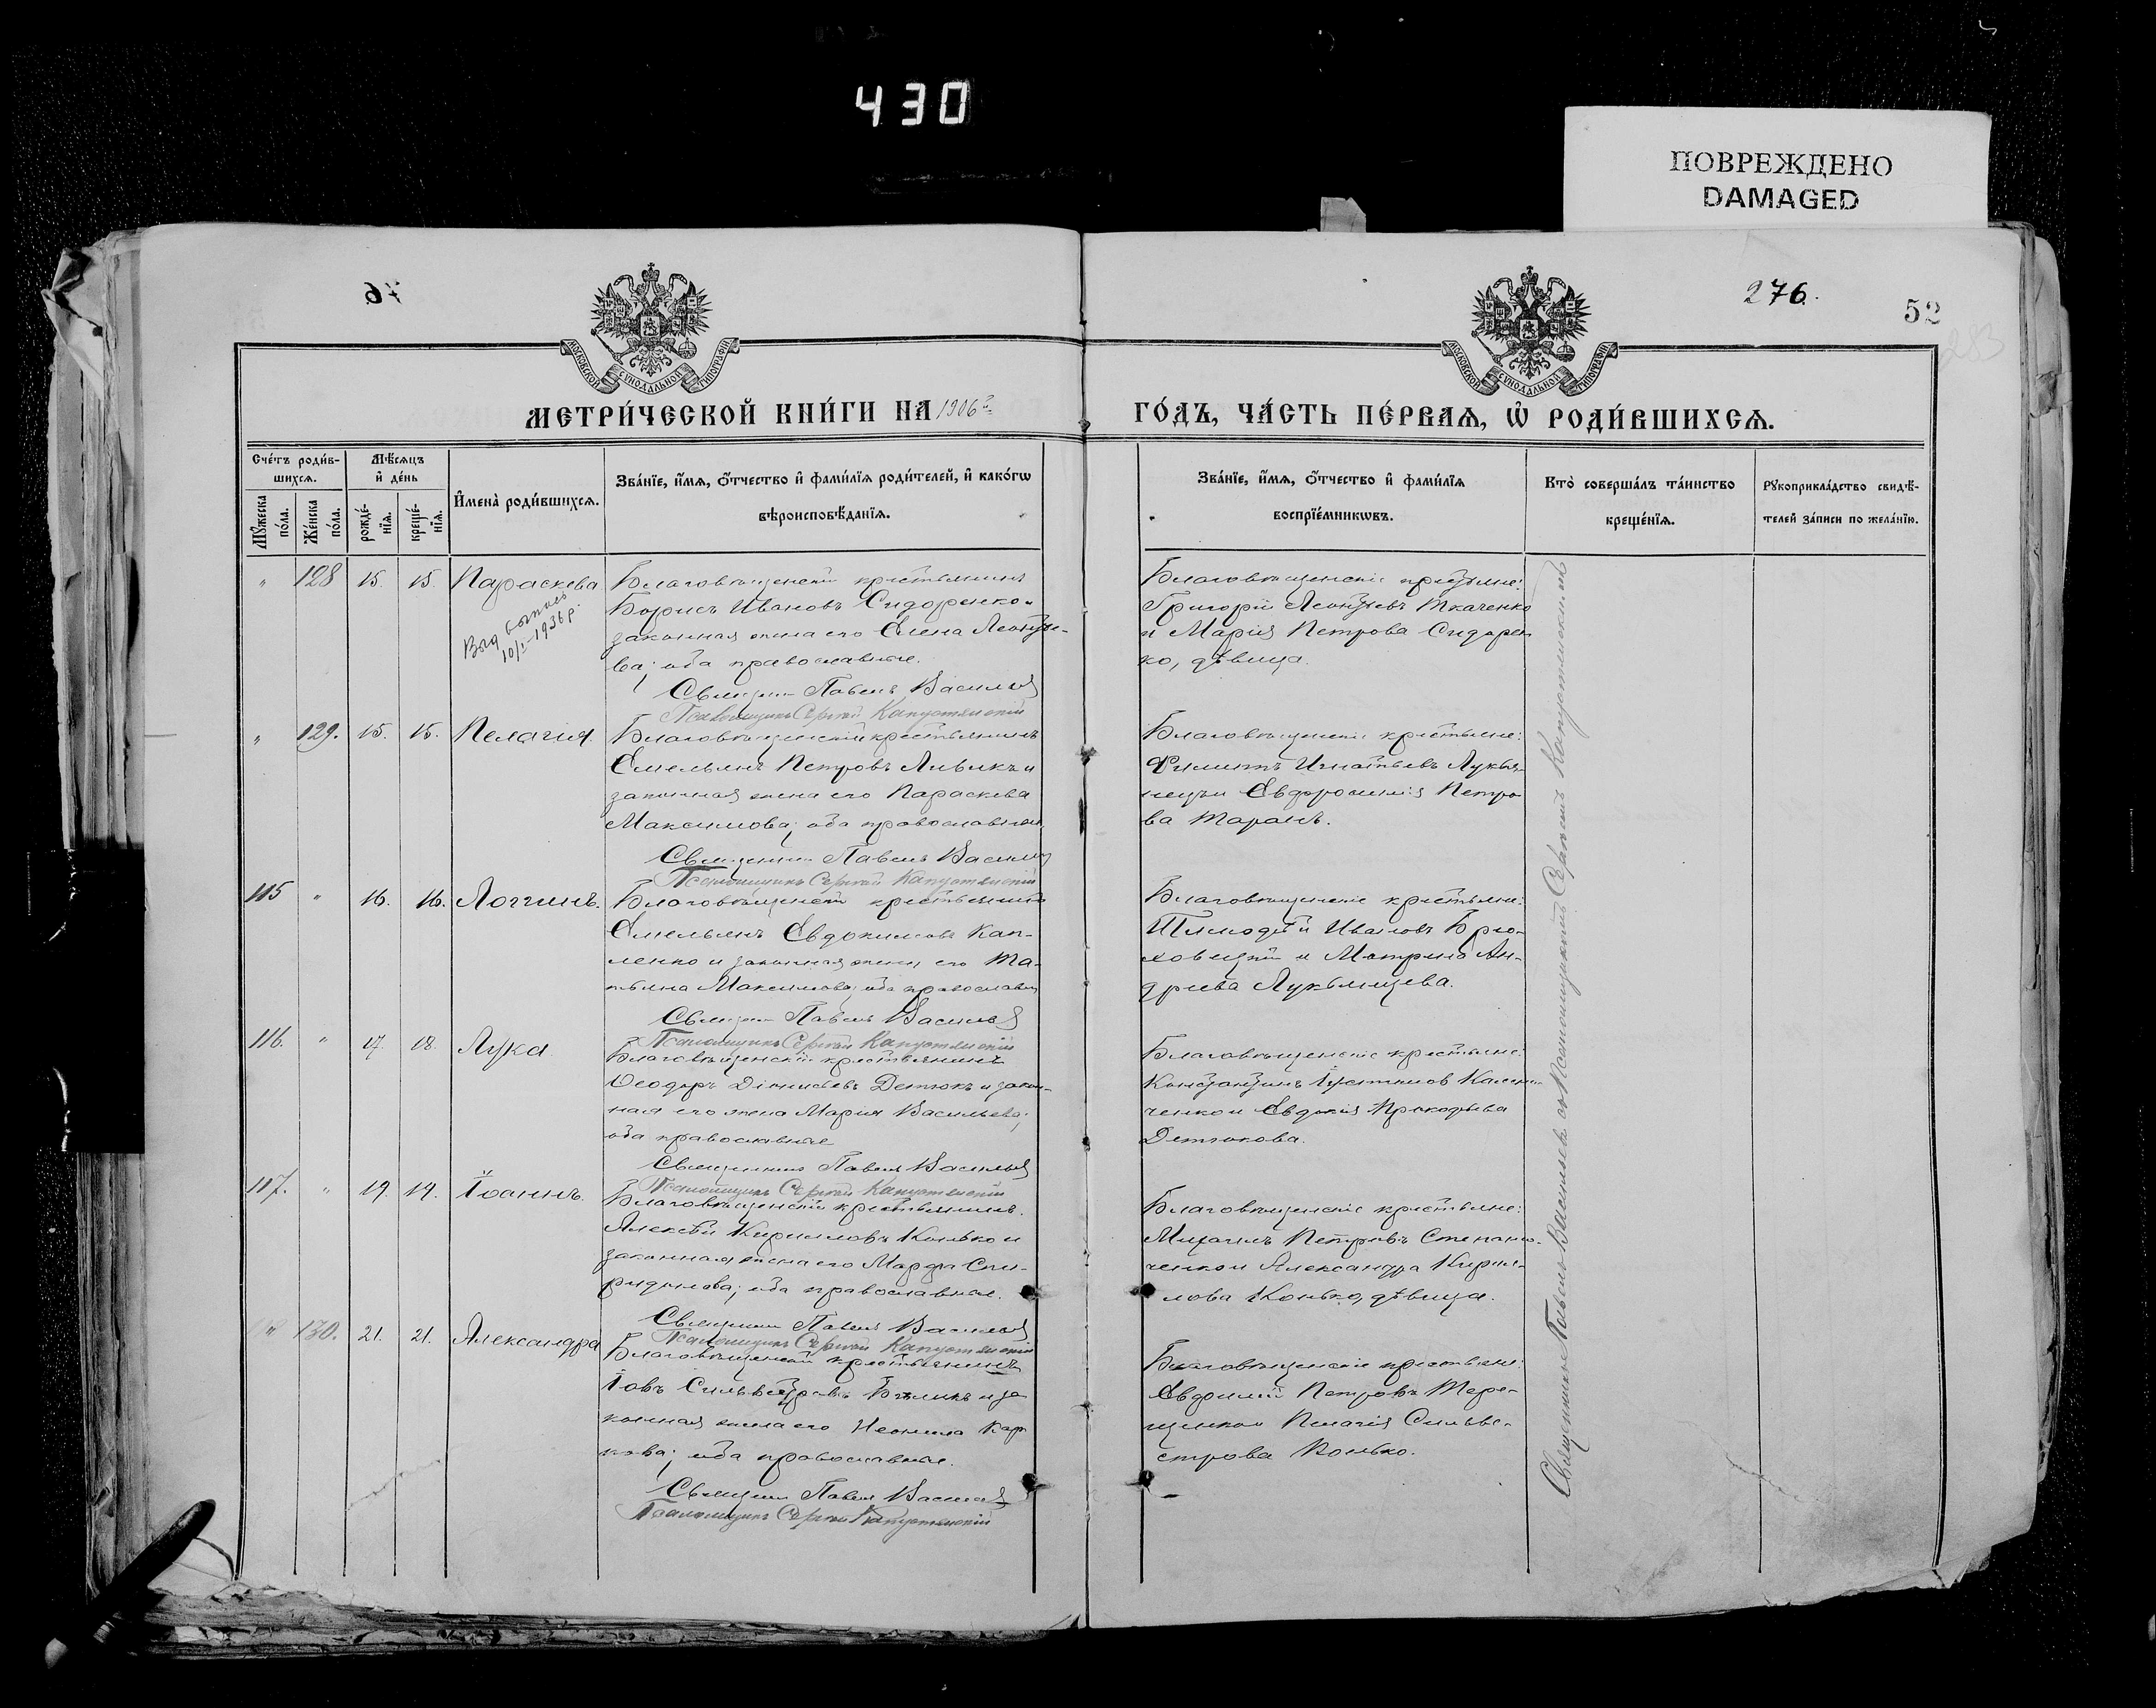 430
ПОВРЕЖДЕНО
DAMAGED
276.
52
МОСКОВСКОЙ СУНОДАЛЬНОЙ ТИПОГРАФІИ
МОСКОВСКОЙ СУНОДАЛЬНОЙ ТИПОГРАФІИ
МЕТРИ́ЧЕСКОЙ КНИ́ГИ НА 1906 г. ГО́ДЪ, ЧА́СТЬ ПЕ́РВАѦ, Ѡ҆ РОДИ́ВШИХСѦ.
Сче́тъ роди́в-
шихсѧ.
Мѣ́сѧцъ
и҆ де́нь
Мꙋ́жеска по́ла.
Же́нска по́ла.
рожде́-
нїѧ.
креще́-
нїѧ.
И҆мена̀ роди́вшихсѧ.
Зва́нїе, и҆́мѧ, ѻ҆́тчество и҆ фами́лїѧ роди́телей, и҆ како́гѡ
вѣроисповѣ́данїѧ.
Зва́нїе, и҆́мѧ, ѻ҆́тчество и҆ фами́лїѧ
воспрїе́мникѡвъ.
Кто̀ соверша́лъ та́инство
креще́нїѧ.
Рꙋкоприкла́дство свидѣ́-
телей за́писи по жела́нїю.
" 128 15. 15. Параскева
10/I-1936 р.
Благовѣщенскій крестьянинъ
Борисъ Ивановъ Сидоренко и
законная жена его Елена Леонтье-
ва; оба православные.
Священникъ Павелъ Васильевъ
Псаломщикъ Сергѣй Капустянскій
Благовѣщенскіе крестьяне:
Григорій Леонтьевъ Ткаченко
и Марія Петрова Сидорен
ко, дѣвица.
" 129. 15. 15. Пелагія.
Благовѣщенскій крестьянинъ
Емельянъ Петровъ и
законная жена его Параскева
Максимова; оба православные.
Священникъ Павелъ Васильевъ
Псаломщикъ Сергѣй Капустянскій
Благовѣщенскіе крестьяне:
Филиппъ Игнатьевъ Лукья-
нецъ и Евфросинія Петро
ва Таранъ.
115 " 16. 16. Логгинъ.
Благовѣщенскій крестьянинъ
Емельянъ Евдокимовъ Кап-
ленко и законная жена его Та-
тьяна Максимова; оба православные
Священникъ Павелъ Васильевъ
Псаломщикъ Сергѣй Капустянскій
Благовѣщенскіе крестьяне:
Тимофей Ивановъ Брю-
ховецкій и Матрона Ан-
дреева Лукьянцева.
116. " 17. 18. Лука.
Благовѣщенскій крестьянинъ
Ѳеодоръ Діонисьевъ Детюкъ и закон-
ная его жена Марія Васильева;
оба православные
Священникъ Павелъ Васильевъ
Псаломщикъ Сергѣй Капустянскій
Благовѣщенскіе крестьяне:
Константинъ
ченко и Евдокія Прокофьева
Детюкова.
117. " 19. 19. Іоаннъ.
Благовѣщенскій крестьянинъ
Алексѣй Кирилловъ Конько и
законная жена его Марфа Спи-
ридонова; оба православные.
Священникъ Павелъ Васильевъ
Псаломщикъ Сергѣй Капустянскій
Благовѣщенскіе крестьяне:
Михаилъ Петровъ Степан-
ченко и Александра Кирил-
лова Конько, дѣвица.
" 130. 21. 21. Александра
Благовѣщенскій крестьянинъ
Іовъ Сильвестровъ Бѣликъ и за
конная жена его Неонила Кар
пова; оба православные.
Священникъ Павелъ Васильевъ
Псаломщикъ Сергѣй Капустянскій
Благовѣщенскіе крестьяне:
Евдокимъ Петровъ Тере-
щенко и Пелагія Сильве-
строва Конько.
Священникъ Павелъ Васильевъ съ Псаломщикомъ Сергѣемъ Капустянскимъ